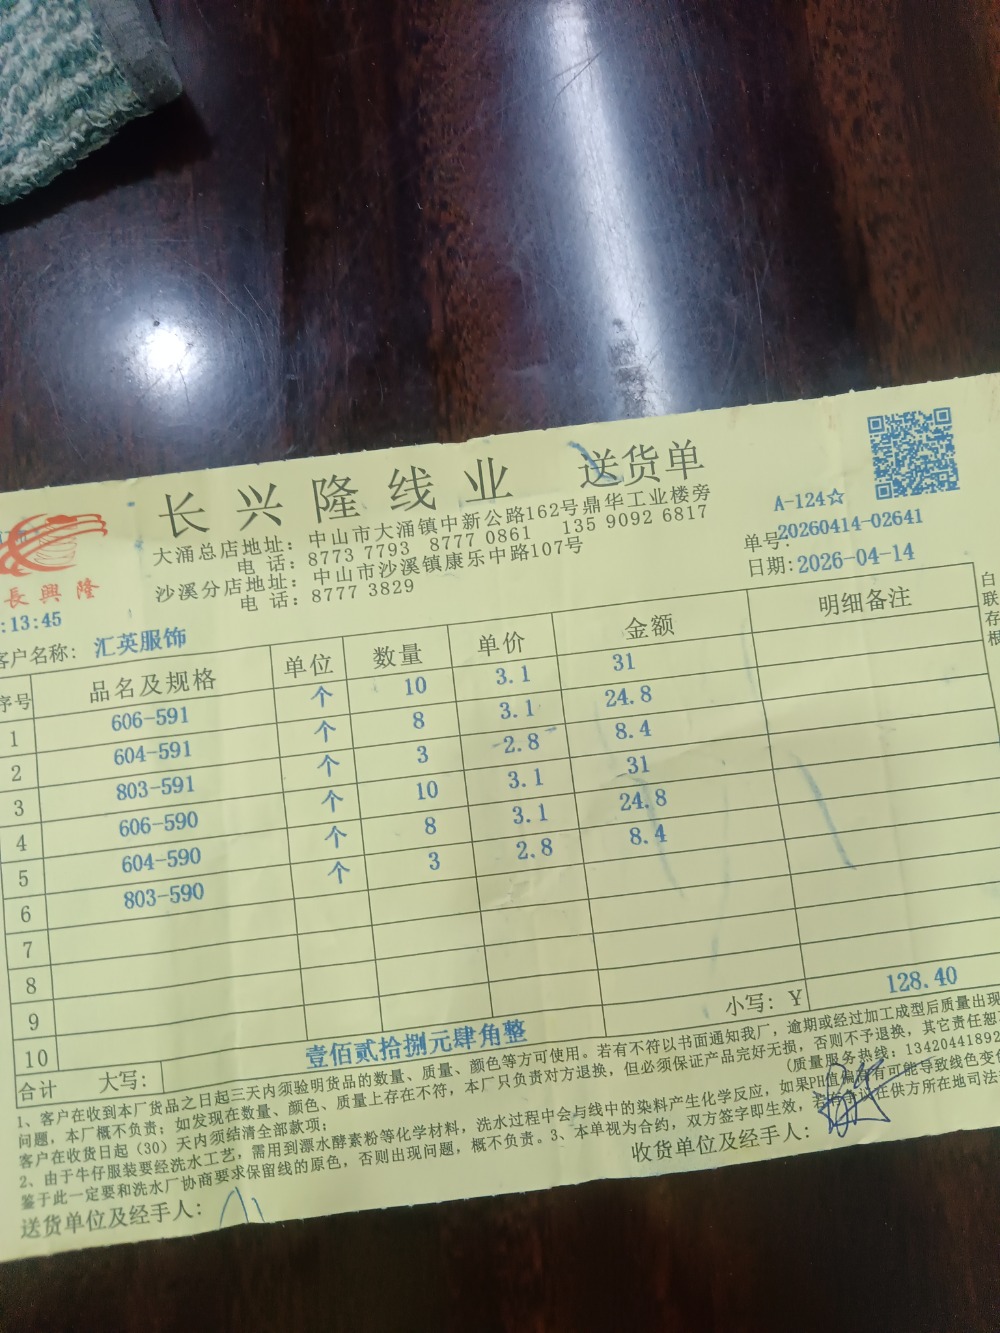 长兴隆线业 送货单
A-124☆
大涌总店地址: 中山市大涌镇中新公路162号鼎华工业楼旁
电 话: 8773 7793 8777 0861 135 9092 6817
单号:20260414-02641
沙溪分店地址: 中山市沙溪镇康乐中路107号
电 话: 8777 3829
日期:2026-04-14
長興隆
:13:45
客户名称: 汇英服饰
白联存根
序号 品名及规格 单位 数量 单价 金额 明细备注
1 606-591 个 10 3.1 31
2 604-591 个 8 3.1 24.8
3 803-591 个 3 2.8 8.4
4 606-590 个 10 3.1 31
5 604-590 个 8 3.1 24.8
6 803-590 个 3 2.8 8.4
7
8
9
10
合计 大写: 壹佰贰拾捌元肆角整 小写: ¥ 128.40
1、客户在收到本厂货品之日起三天内须验明货品的数量、质量、颜色等方可使用。若有不符以书面通知我厂，逾期或经过加工成型后质量出现
问题，本厂概不负责；如发现在数量、颜色、质量上存在不符，本厂只负责对方退换，但必须保证产品完好无损，否则不予退换，其它责任恕
客户在收货日起（30）天内须结清全部款项；
(质量服务热线: 1342044189
2、由于牛仔服装要经洗水工艺，需用到漂水酵素粉等化学材料，洗水过程中会与线中的染料产生化学反应，如果PH值偏 有可能导致线色变
鉴于此一定要和洗水厂协商要求保留线的原色，否则出现问题，概不负责。3、本单视为合约，双方签字即生效，若有争议在供方所在地司法
送货单位及经手人:
收货单位及经手人: